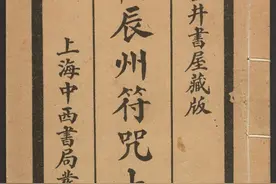 井書屋藏版
辰州符咒
上海中西書局